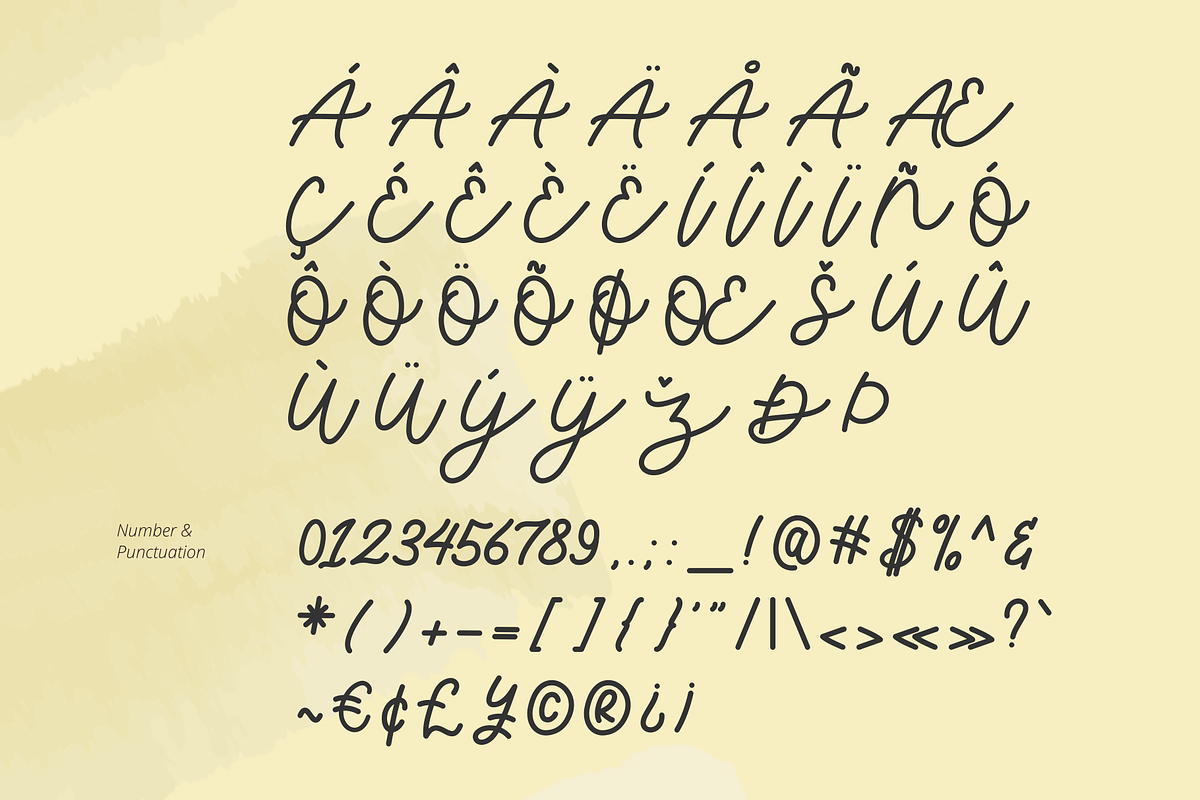 Á Â À Ä Å Ã Æ
Ç É Ê È Ë Í Î Ì Ï Ñ Ó
Ô Ò Ö Õ Ø Œ Š Ú Û
Ù Ü Ý Ÿ Ž Ð Þ
Number &
Punctuation
0123456789,.;:_!@#$%^&
*()+-=[]{}'"/|\<>«»?`
~€¢£¥©®¿¡